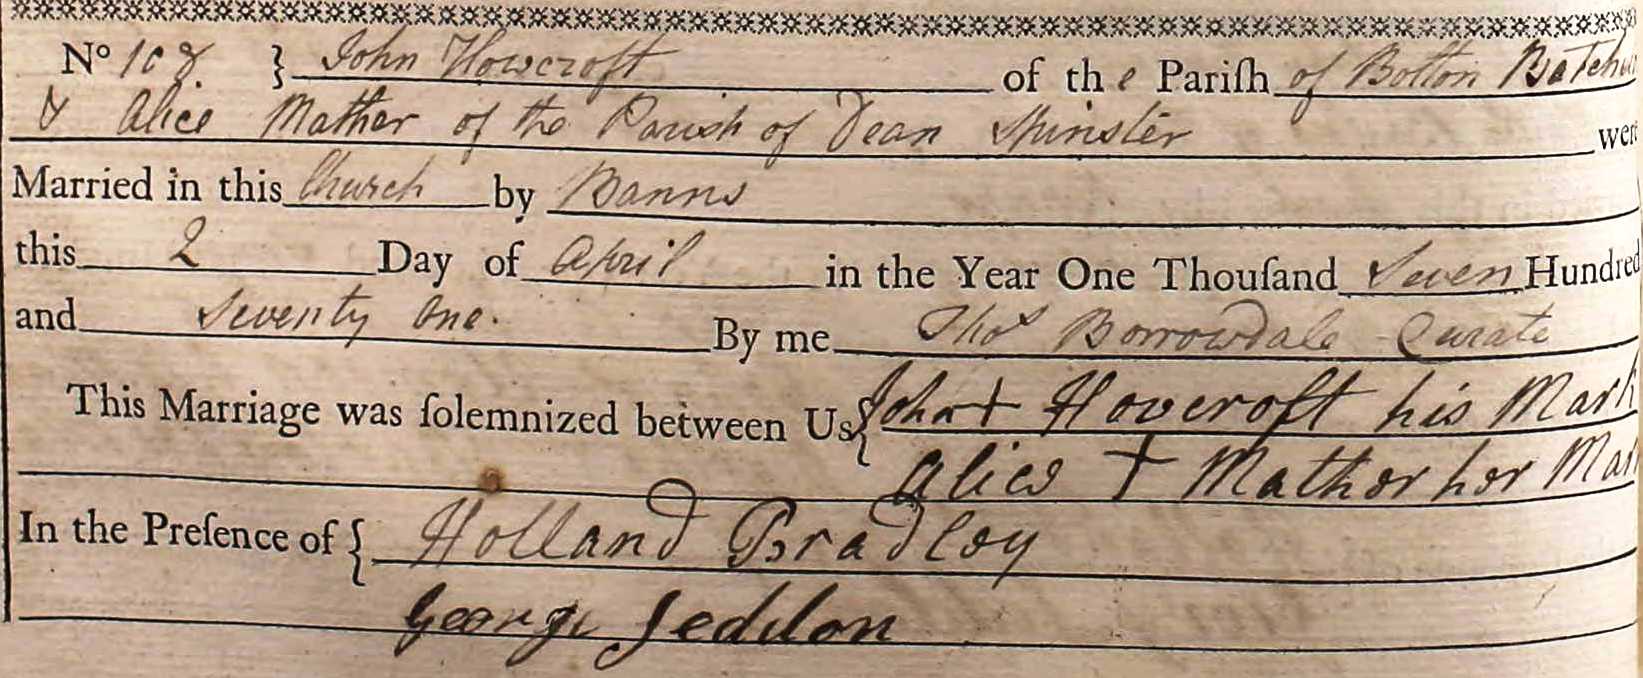 No 108 } John Howcroft of the Pariſh of Bolton Batchu
& Alice Mather of the Parish of Dean Spinster were
Married in this Church by Banns
this 2 Day of April in the Year One Thouſand Seven Hundred
and Seventy One. By me Thos Borrowdale Curate
This Marriage was ſolemnized between Us { John + Hovcroft his Mark
Alice + Mather her Mark
In the Preſence of { Holland Bradley
George Seddon